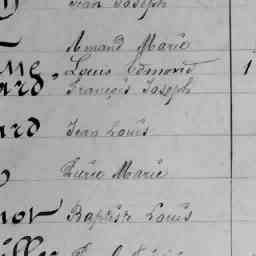 Jean Joseph
Amand Marie
Louis Edmond 1
ard François Joseph
ard Jean Louis
Pierre Marie
not Baptiste Louis